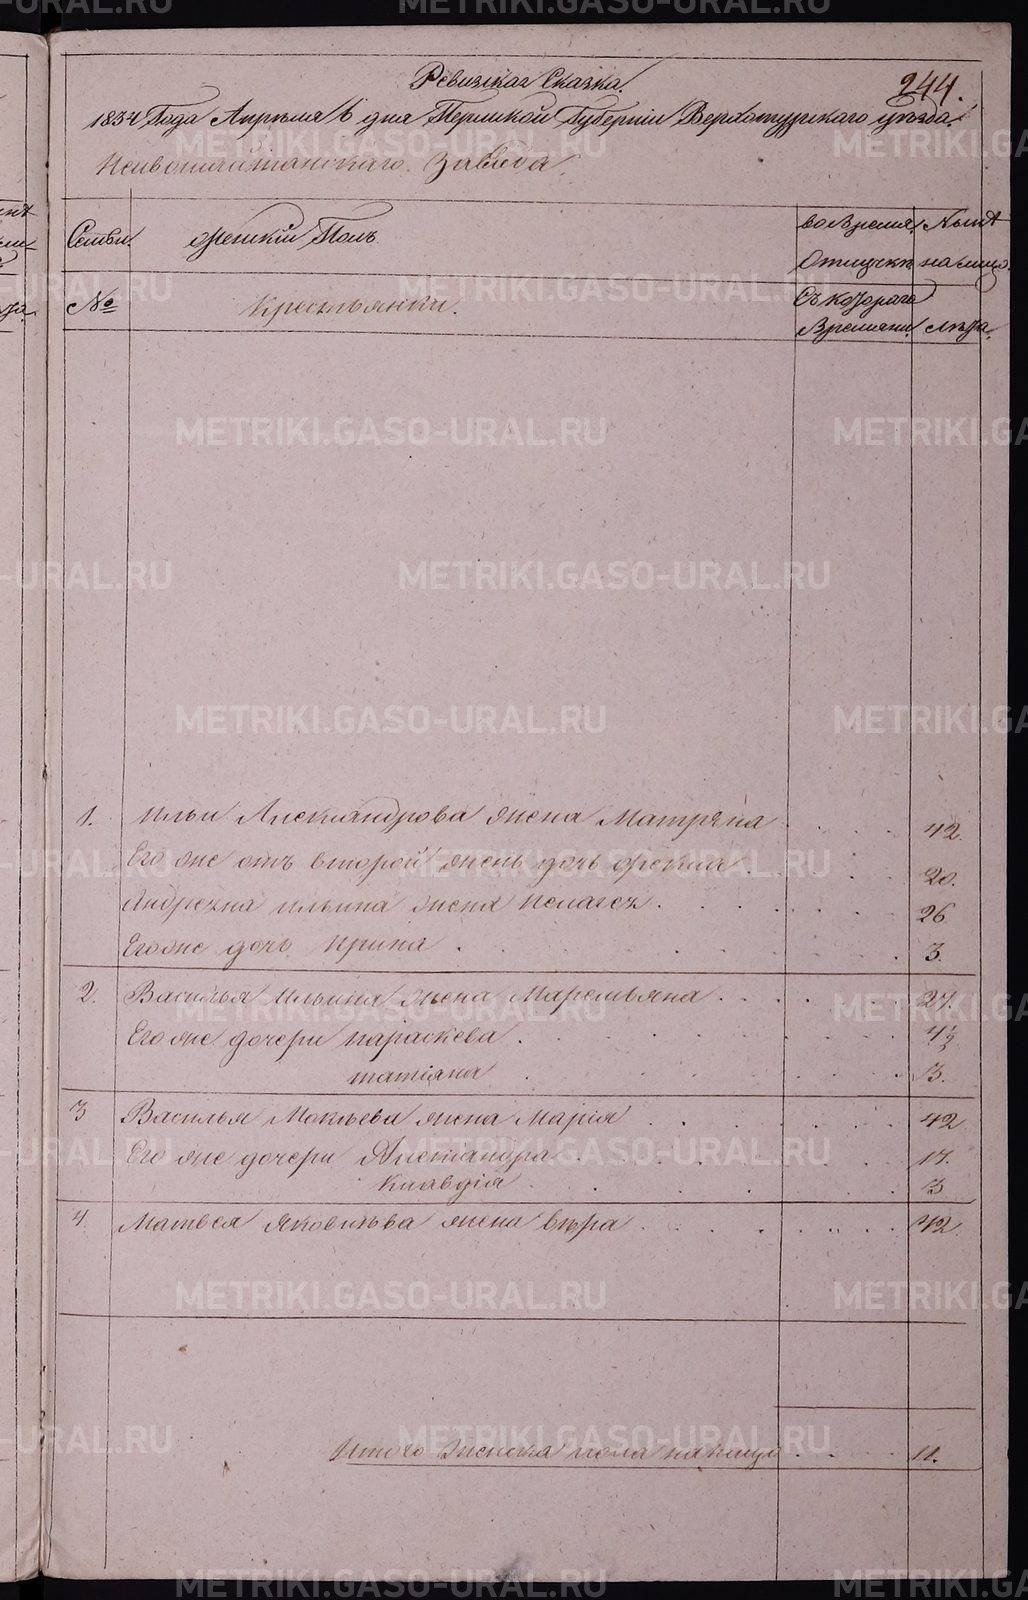 Ревизская Сказка.
244.
1834 Года Апреля 6 дня Пермской Губернiи Верхотурскаго уезда.
Нейвошайтанскаго Завода.
Семьи. Женскiй Полъ. во время Ныне
отлучки на лицо.
№ Крестьянки. Съ котораго
Времяни. Лета.
1. Ильи Александрова жена Матрена 42.
Его же отъ второй жены дочь Фекла 20.
Андреяна Ильина жена Пелагея 26
Его же дочь Ирина 3.
2. Василья Ильина жена Маремьяна 27.
Его же дочери Параскева 4½
Татiяна 3.
3 Василья Мокеева жена Марiя 42
Его же дочери Александра 17.
Клавдiя 3
4. Матвея Яковлева жена Вера 42.
Итого женска пола налицо 11.
METRIKI.GASO-URAL.RU